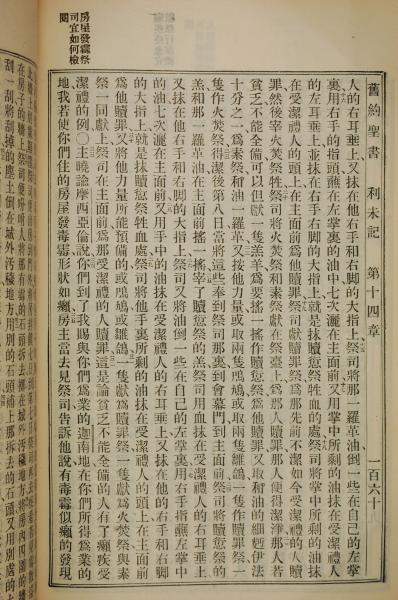 舊約聖書 利未記 第十四章 一百六十
人的右耳垂上又抹在他右手和右脚的大指上祭司將那一羅革油倒一些在自己的左掌
裏用右手的指頭蘸在左掌裏的油中七次灑在主面前又用掌中所剩的油抹在受潔禮人
的左耳垂上並抹在右手右脚的大指上就是抹贖愆祭牲血的處祭司將掌中所剩的油抹
在受潔禮人的頭上在主面前爲他贖罪祭司獻贖罪祭爲那先前不潔如今受潔禮的人贖
罪然後宰火焚祭牲祭司將火焚祭和素祭獻在祭臺上爲那人贖罪那人便得潔淨那人若
貧乏不能全備可以但獻一隻羔羊爲要搖一搖作贖愆祭爲他贖罪又取和油的細麪伊法
十分之一爲素祭和油一羅革又按他力量或取兩隻鳲鳩或取兩隻雛鴿一隻作贖罪祭一
隻作火焚祭得潔後第八日當將這些奉到祭司那裏到會幕門到主面前祭司將贖愆祭的
羔和那一羅革油在主面前搖一搖宰了贖愆祭的羔祭司用血抹在受潔禮人的右耳垂上
又抹在他右手和右脚的大指上祭司又將油倒一些在自己的左掌裏用右手指蘸左掌中
的油七次灑在主面前又用手中的油抹在受潔禮人的右耳垂上又抹在他的右手和右脚
的大指上就是抹贖愆祭牲血處祭司將他手裏所剩的油抹在受潔禮人的頭上在主面前
爲他贖罪又將他力量所能預備的或鳲鳩或雛鴿一隻獻爲贖罪祭一隻獻爲火焚祭與素
祭一同獻上祭司在主面前爲那受潔禮的人贖罪這是論貧乏不能全備的人有了癩疾受
潔禮的例○主曉諭摩西亞倫說你們到了我賜與你們爲業的迦南地在你們所得爲業的
地我若使你們住的房屋發毒霉形狀如癩房主當去見祭司告訴他說有毒霉似癩的發現
房屋發霉祭
司宜如何檢
閱